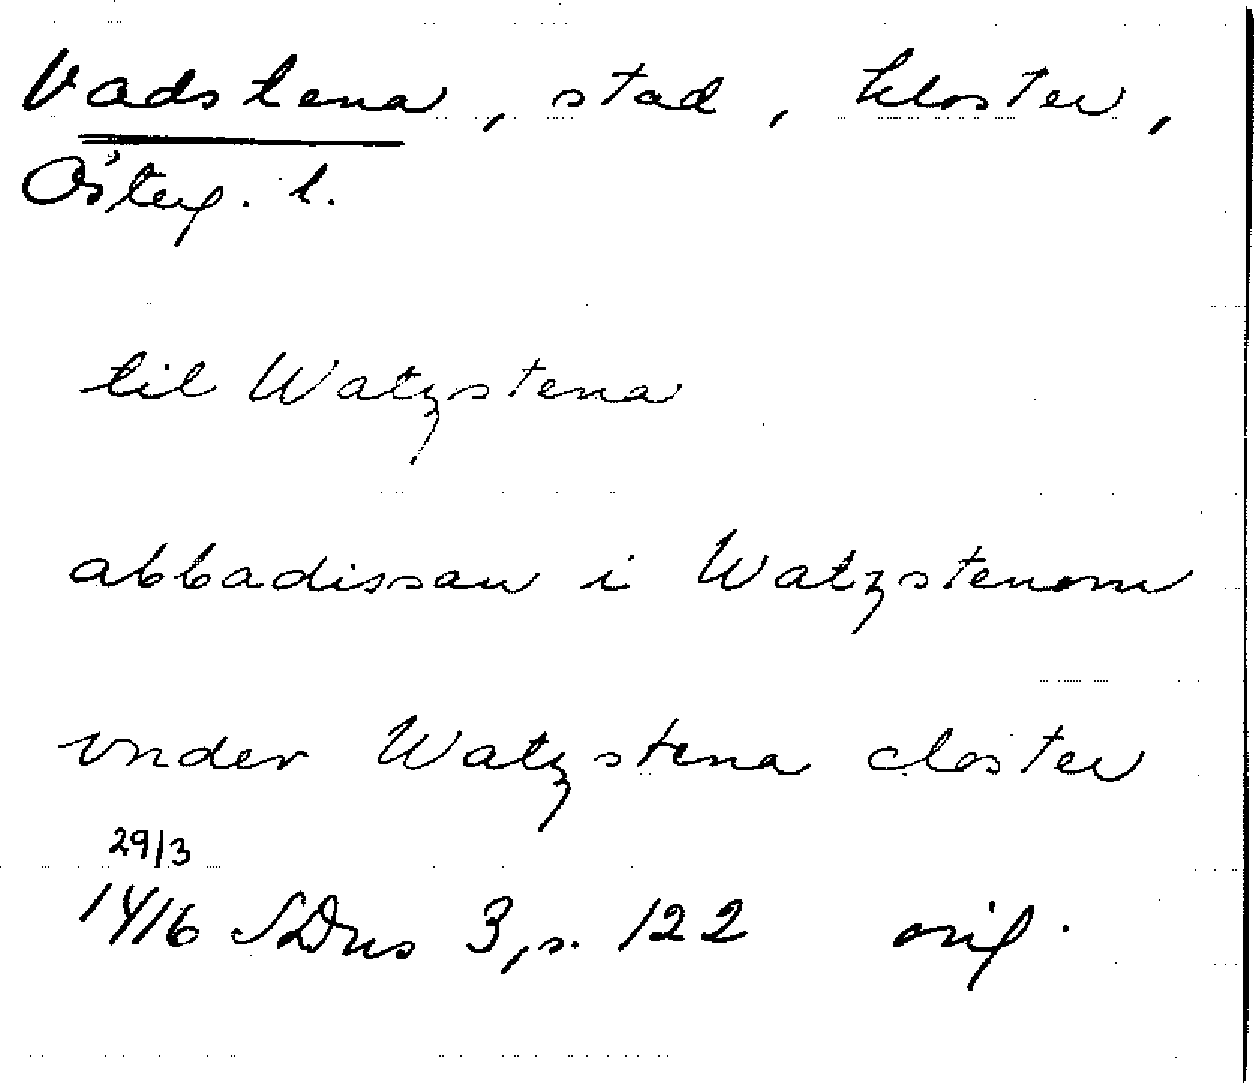 Vadstena, stad, kloster,
Österg. l.
til Watzstena
abbadissan i Watzstenom
vnder Watzstena closter
29/3
1416 SDns 3, s. 122 orig.